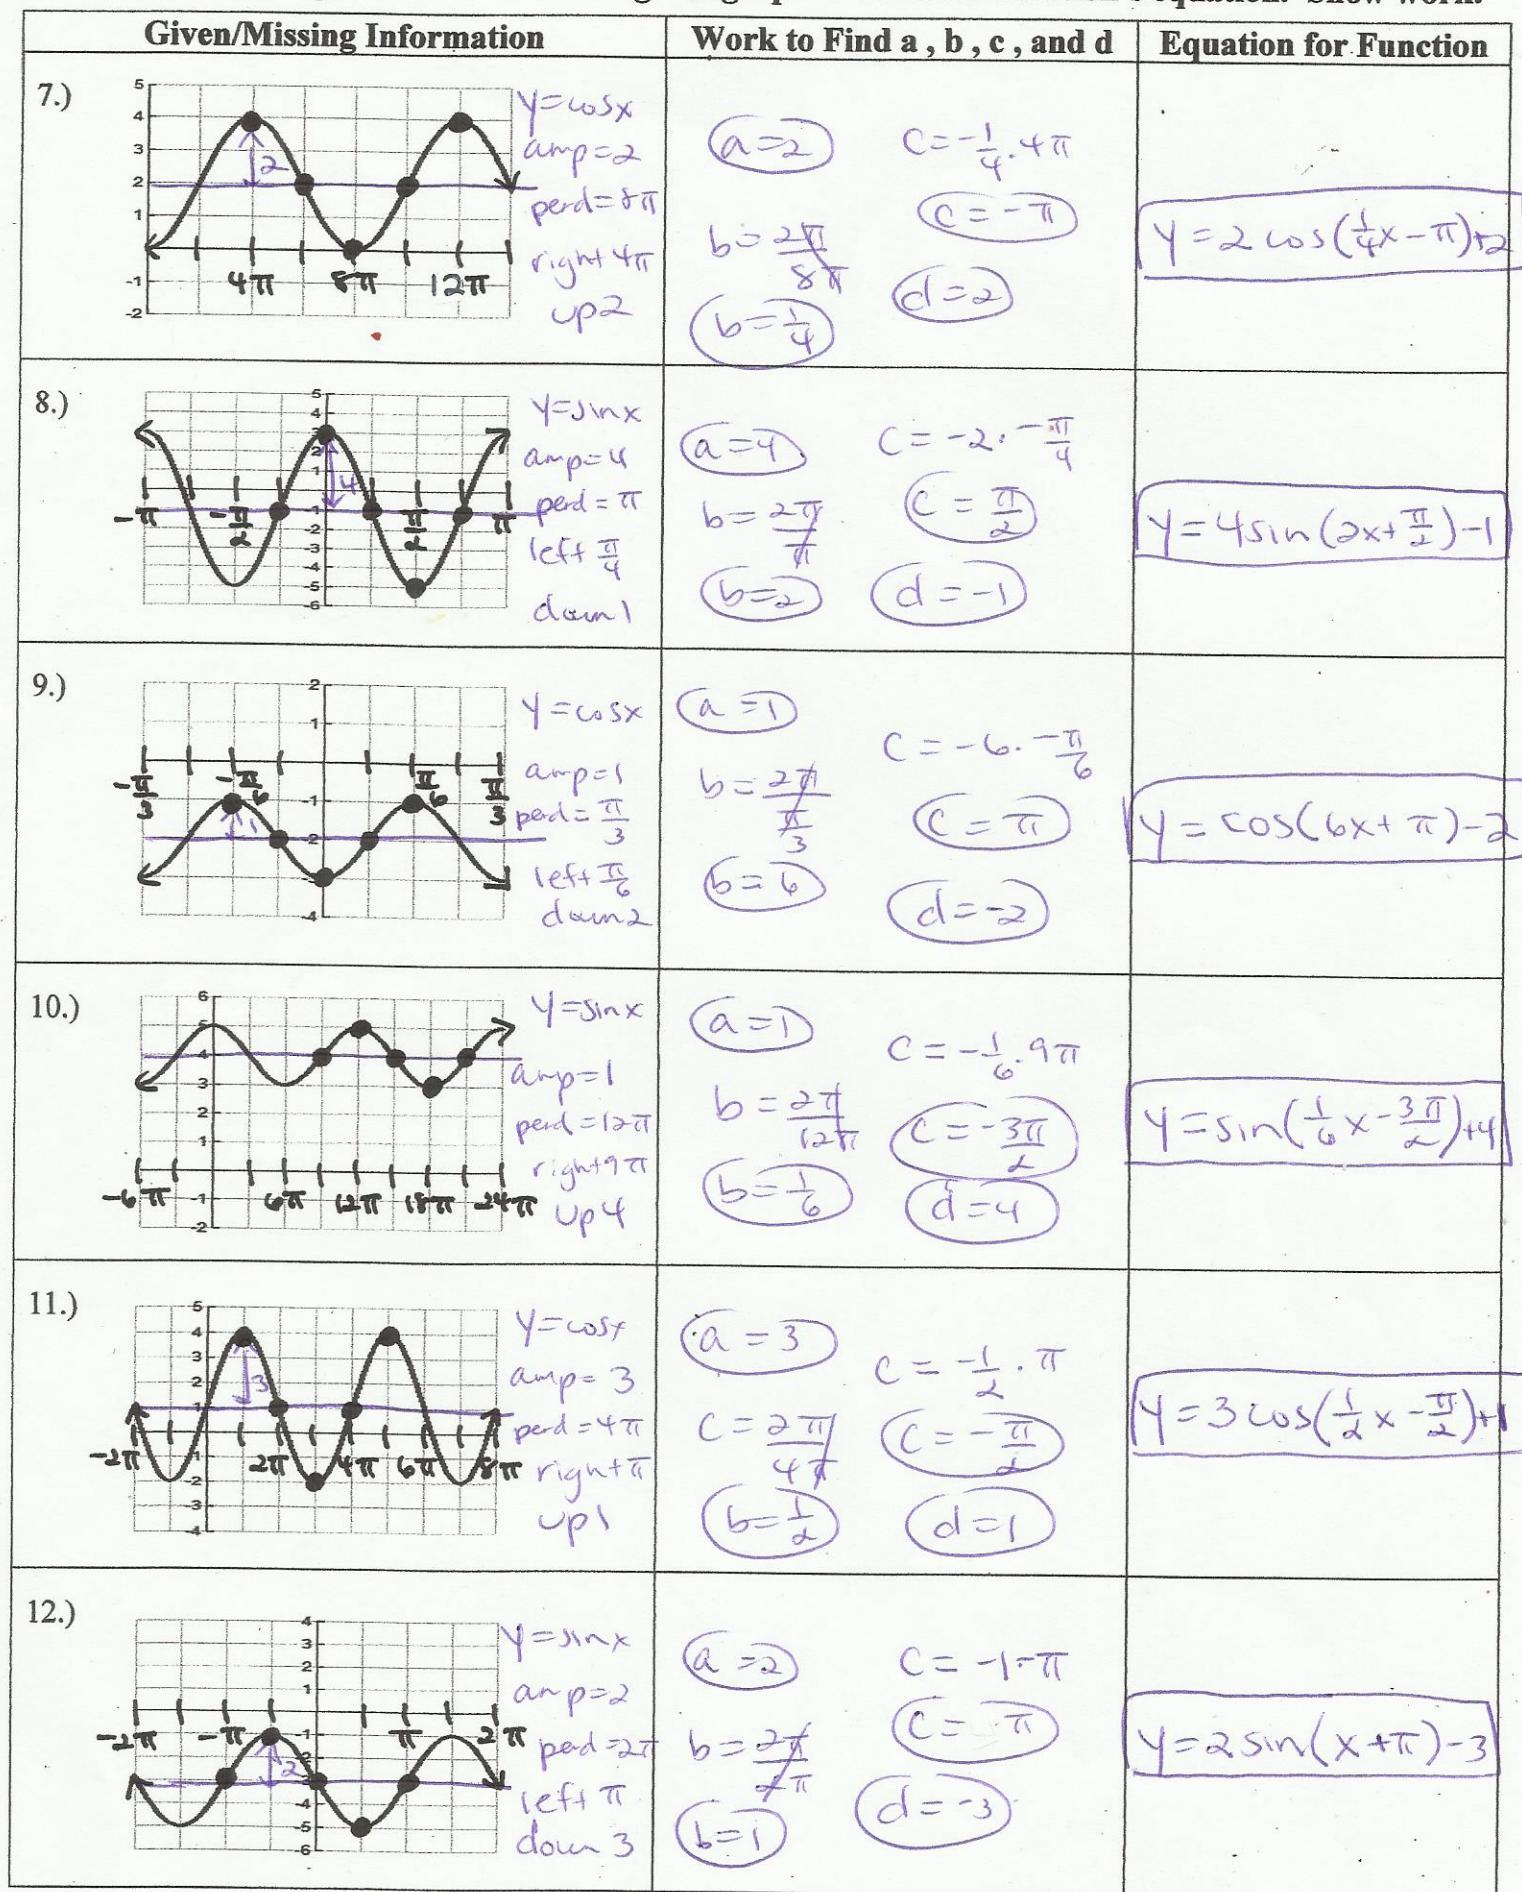 equation. Show work.
Given/Missing Information | Work to Find a , b , c , and d | Equation for Function
7.)
5
4
3
2
1
-1
-2
4π 8π 12π
2
y=cosx
amp=2
perd=8π
right 4π
up2
a=2
b=2π/8π
b=1/4
c=-1/4·4π
c=-π
d=2
y=2cos(1/4x-π)+2
8.)
5
4
2
1
-1
-2
-3
-4
-5
-6
-π -π/2 π/2 π
4
y=sinx
amp=4
perd=π
left π/4
down1
a=4
b=2π/π
b=2
c=-2·-π/4
c=π/2
d=-1
y=4sin(2x+π/2)-1
9.)
2
1
-1
-2
-4
-π/3 -π/6 π/6 π/3
1
y=cosx
amp=1
perd=π/3
left π/6
down2
a=1
b=2π/π/3
b=6
c=-6·-π/6
c=π
d=-2
y=cos(6x+π)-2
10.)
6
5
4
3
2
1
-1
-2
-6π 6π 12π 18π 24π
y=sinx
amp=1
perd=12π
right 9π
up4
a=1
b=2π/12π
b=1/6
c=-1/6·9π
c=-3π/2
d=4
y=sin(1/6x-3π/2)+4
11.)
5
4
3
2
1
-1
-2
-3
-4
-2π 2π 4π 6π 8π
3
y=cosx
amp=3
perd=4π
right π
up1
a=3
c=2π/4π
b=1/2
c=-1/2·π
c=-π/2
d=1
y=3cos(1/2x-π/2)+1
12.)
4
3
2
1
-1
-2
-4
-5
-6
-2π -π π 2π
2
y=sinx
amp=2
perd=2π
left π
down 3
a=2
b=2π/2π
b=1
c=-1·-π
c=π
d=-3
y=2sin(x+π)-3